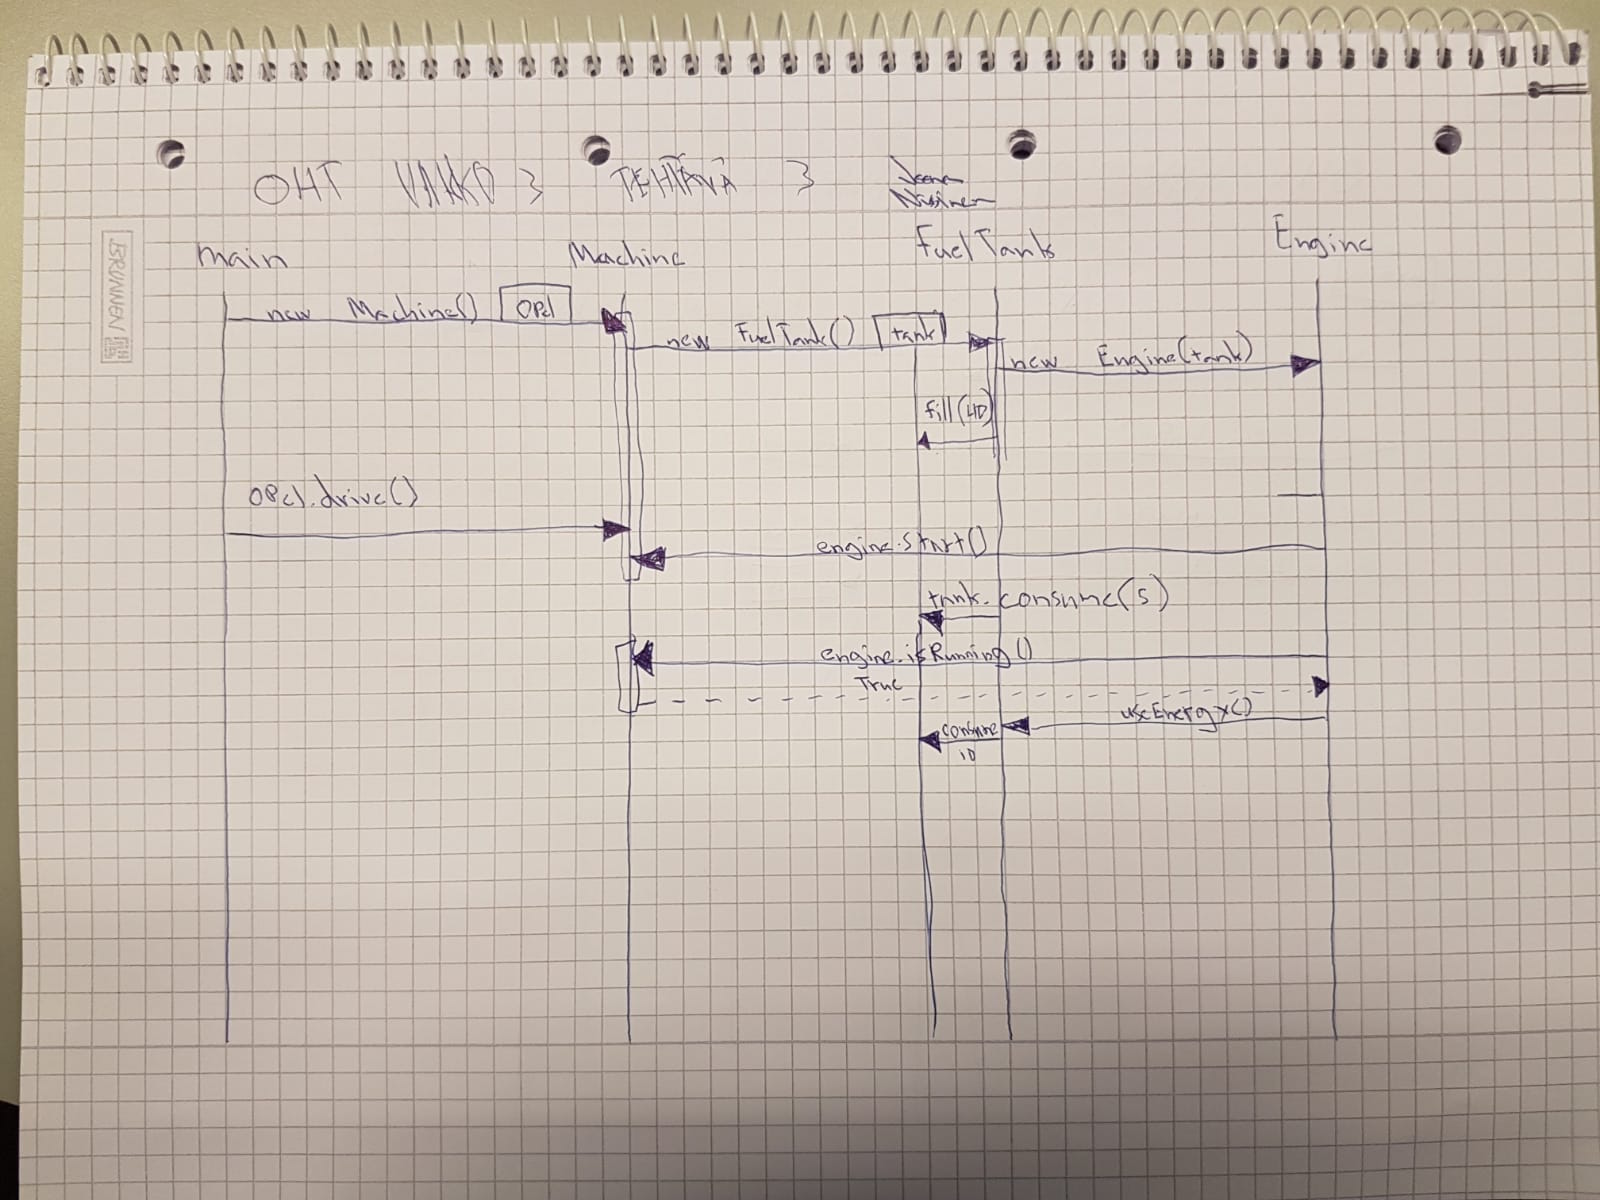 OHT VIIKKO 3 TEHTÄVÄ 3
BRUNNEN
main Machine FuelTank Engine
new Machine() Opel
new FuelTank() tank
new Engine(tank)
fill(40)
Opel.drive()
engine.start()
tank.consume(5)
engine.isRunning()
True
useEnergy()
consume
10